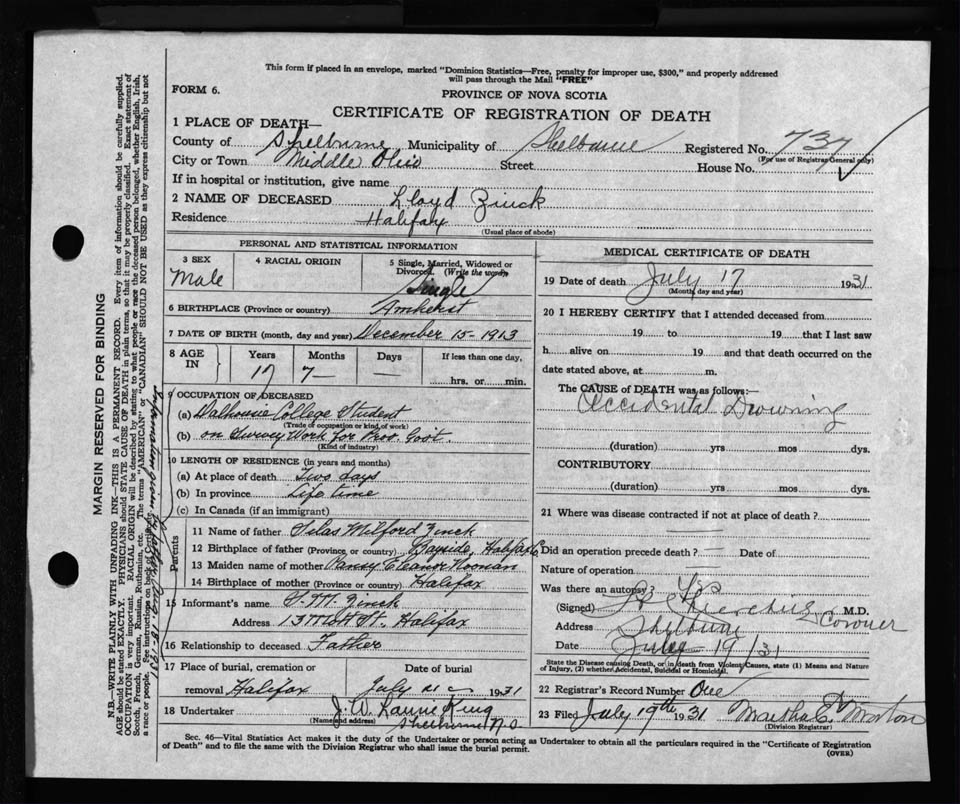 This form if placed in an envelope, marked "Dominion Statistics—Free, penalty for improper use, $300," and properly addressed
will pass through the Mail "FREE"
FORM 6.
PROVINCE OF NOVA SCOTIA
CERTIFICATE OF REGISTRATION OF DEATH
1 PLACE OF DEATH—
County of Shelburne Municipality of Shelburne Registered No. 737
(For use of Registrar General only)
City or Town Middle Ohio Street House No.
If in hospital or institution, give name
2 NAME OF DECEASED Lloyd Zinck
Residence Halifax
(Usual place of abode)
PERSONAL AND STATISTICAL INFORMATION
3 SEX 4 RACIAL ORIGIN 5 Single, Married, Widowed or Divorced. (Write the word)
Male Single
6 BIRTHPLACE (Province or country) Amherst
7 DATE OF BIRTH (month, day and year) December 15-1913
8 AGE IN Years Months Days If less than one day,
17 7 — hrs. or min.
9 OCCUPATION OF DECEASED
(a) Dalhousie College Student
(Trade of occupation or kind of work)
(b) on Survey Work for Prov. Gov't.
(Kind of industry)
10 LENGTH OF RESIDENCE (in years and months)
(a) At place of death Two days
(b) In province Life time
(c) In Canada (if an immigrant)
Parents
11 Name of father Silas Milford Zinck
12 Birthplace of father (Province or country) Bayside, Halifax Co.
13 Maiden name of mother Pansy Eleanor Noonan
14 Birthplace of mother (Province or country) Halifax
15 Informant's name S. M. Zinck
Address St. Halifax
16 Relationship to deceased Father
17 Place of burial, cremation or removal Halifax Date of burial July 21 1931
18 Undertaker J. W. King
(Name and address) Shelburne N.S.
MEDICAL CERTIFICATE OF DEATH
19 Date of death July 17 1931
(Month, day and year)
20 I HEREBY CERTIFY that I attended deceased from
19 to 19 that I last saw
h alive on 19 and that death occurred on the
date stated above, at m.
The CAUSE of DEATH was as follows:
Accidental Drowning
(duration) yrs mos dys.
CONTRIBUTORY
(duration) yrs mos dys.
21 Where was disease contracted if not at place of death?
Did an operation precede death? — Date of
Nature of operation
Was there an autopsy Yes
(Signed) M.D. Coroner
Address Shelburne
Date July 19/31
State the Disease causing Death, or in death from Violent Causes, state (1) Means and Nature
of Injury, (2) whether Accidental, Suicidal or Homicidal.
22 Registrar's Record Number One
23 Filed July 19th 1931 Martha E. Morton
(Division Registrar)
Sec. 46—Vital Statistics Act makes it the duty of the Undertaker or person acting as Undertaker to obtain all the particulars required in the "Certificate of Registration
of Death" and to file the same with the Division Registrar who shall issue the burial permit.
(OVER)
MARGIN RESERVED FOR BINDING
N.B.—WRITE PLAINLY WITH UNFADING INK—THIS IS A PERMANENT RECORD. Every item of information should be carefully supplied.
AGE should be stated EXACTLY. PHYSICIANS should STATE CAUSE OF DEATH in plain terms, so that it may be properly classified. Exact statement of
OCCUPATION is very important. RACIAL ORIGIN will be described by stating to what people or race the deceased person belonged, whether English, Irish,
Scotch, French, German, Russian, Ruthenian, etc. The terms "AMERICAN" or "CANADIAN" SHOULD NOT BE USED as they express citizenship but not
a race or people. See instructions on back of Certificate.